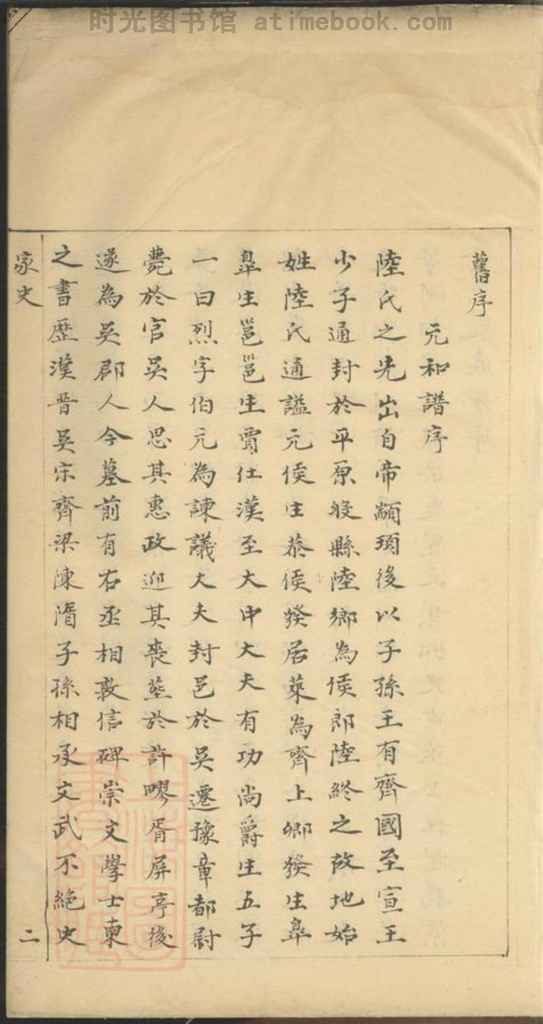 时光图书馆 atimebook.com
舊序
元和譜序
陸氏之先出自帝顓頊後以子孫王有齊國至宣王
少子通封於平原般縣陸鄉為侯郎陸終之故地始
姓陸氏通謚元侯生恭侯發居萊為齊上卿發生皐
皐生邕邕生賈仕漢至大中大夫有功尚爵生五子
一曰烈字伯元為諫議大夫封邑於吳遷豫章都尉
薨於官吳人思其惠政迎其喪塟於許㟉胥屏亭後
遂為吳郡人今墓前有右丞相敦信碑崇文學士柬
之書歷漢晉吳宋齊梁陳隋子孫相承文武不絕史
家史
二